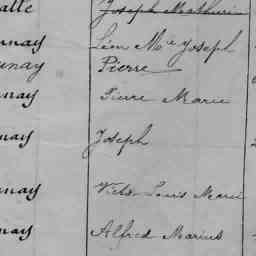 Joseph Mathurin
Léon Mie Joseph
Pierre
Pierre Marie
Joseph
Victor Louis Marie
Alfred Marius